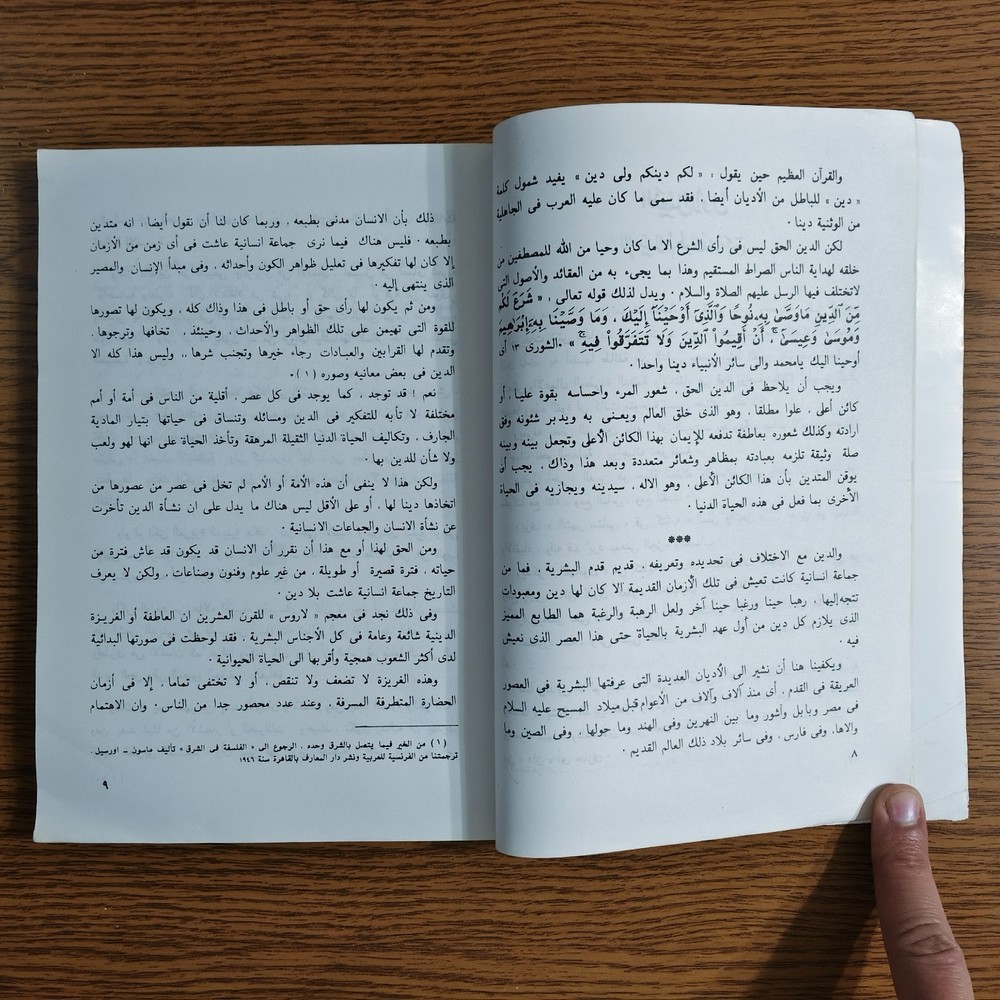 والقرآن العظيم حين يقول : « لكم دينكم ولى دين » يفيد شمول كلمة
« دين » للباطل من الأديان أيضا . فقد سمى ما كان عليه العرب فى الجاهلية
من الوثنية دينا ·
لكن الدين الحق ليس فى رأى الشرع الا ما كان وحيا من الله للمصطفين من
خلقه لهداية الناس الصراط المستقيم وهذا بما يجىء به من العقائد والأصول التى
لاتختلف فيها الرسل عليهم الصلاة والسلام . ويدل لذلك قوله تعالى : « شَرَعَ لَكُم
مِّنَ ٱلدِّينِ مَا وَصَّىٰ بِهِۦ نُوحًا وَٱلَّذِىٓ أَوْحَيْنَآ إِلَيْكَ ، وَمَا وَصَّيْنَا بِهِۦٓ إِبْرَٰهِيمَ
وَمُوسَىٰ وَعِيسَىٰٓ ، أَنْ أَقِيمُوا۟ ٱلدِّينَ وَلَا تَتَفَرَّقُوا۟ فِيهِ ۚ » ·الشورى ١٣ أى
أوحينا اليك يامحمد والى سائر الأنبياء دينا واحدا ·
ويجب أن يلاحظ فى الدين الحق . شعور المرء واحساسه بقوة عليا . أو
كائن أعلى . علوا مطلقا . وهو الذى خلق العالم ويعنى به ويدبر شئونه وفق
ارادته وكذلك شعوره بعاطفة تدفعه للإيمان بهذا الكائن الأعلى وتجعل بينه وبينه
صلة وثيقة تلزمه بعبادته بمظاهر وشعائر متعددة وبعد هذا وذاك . يجب أن
يوقن المتدين بأن هذا الكائن الأعلى . وهو الاله . سيدينه ويجازيه فى الحياة
الأخرى بما فعل فى هذه الحياة الدنيا ·
***
والدين مع الاختلاف فى تحديده وتعريفه . قديم قدم البشرية . فما من
جماعة انسانية كانت تعيش فى تلك الأزمان القديمة الا كان لها دين ومعبودات
تتجه إليها . رهبا حينا ورغبا حينا آخر ولعل الرهبة والرغبة هما الطابع المميز
الذى يلازم كل دين من أول عهد البشرية بالحياة حتى هذا العصر الذى نعيش
فيه ·
ويكفينا هنا أن نشير الى الأديان العديدة التى عرفتها البشرية فى العصور
العريقة فى القدم . أى منذ آلاف وآلاف من الأعوام قبل ميلاد المسيح عليه السلام
فى مصر وبابل وآشور وما بين النهرين وفى الهند وما حولها . وفى الصين وما
والاها . وفى فارس . وفى سائر بلاد ذلك العالم القديم ·
٨
ذلك بأن الانسان مدنى بطبعه . وربما كان لنا أن نقول أيضا : انه متدين
بطبعه · فليس هناك فيما نرى جماعة انسانية عاشت فى أى زمن من الأزمان
إلا كان لها تفكيرها فى تعليل ظواهر الكون وأحداثه . وفى مبدأ الإنسان والمصير
الذى ينتهى إليه ·
ومن ثم يكون لها رأى حق أو باطل فى هذا وذاك كله . ويكون لها تصورها
للقوة التى تهيمن على تلك الظواهر والأحداث . وحينئذ . تخافها وترجوها .
وتقدم لها القرابين والعبادات رجاء خيرها وتجنب شرها .. وليس هذا كله الا
الدين فى بعض معانيه وصوره ( ١ ) ·
نعم ! قد توجد . كما يوجد فى كل عصر . أقلية من الناس فى أمة أو أمم
مختلفة لا تأبه للتفكير فى الدين ومسائله وتنساق فى حياتها بتيار المادية
الجارف . وتكاليف الحياة الدنيا الثقيلة المرهقة وتأخذ الحياة على انها لهو ولعب
ولا شأن للدين بها ·
ولكن هذا لا ينفى أن هذه الأمة أو الأمم لم تخل فى عصر من عصورها من
اتخاذها دينا لها . أو على الأقل ليس هناك ما يدل على ان نشأة الدين تأخرت
عن نشأة الانسان والجماعات الانسانية ·
ومن الحق لهذا أو مع هذا أن نقرر أن الانسان قد يكون قد عاش فترة من
حياته . فترة قصيرة أو طويلة . من غير علوم وفنون وصناعات . ولكن لا يعرف
التاريخ جماعة انسانية عاشت بلا دين ·
وفى ذلك نجد فى معجم « لاروس » للقرن العشرين ان العاطفة أو الغريزة
الدينية شائعة وعامة فى كل الأجناس البشرية . فقد لوحظت فى صورتها البدائية
لدى أكثر الشعوب همجية وأقربها الى الحياة الحيوانية ·
وهذه الغريزة لا تضعف ولا تنقص . أو لا تختفى تماما . إلا فى أزمان
الحضارة المتطرفة المسرفة . وعند عدد محصور جدا من الناس . وان الاهتمام
( ١ ) من الخير فيما يتصل بالشرق وحده . الرجوع الى « الفلسفة فى الشرق » تأليف ماسون – اورسيل .
ترجمتنا من الفرنسية للعربية ونشر دار المعارف بالقاهرة سنة ١٩٤٦
٩